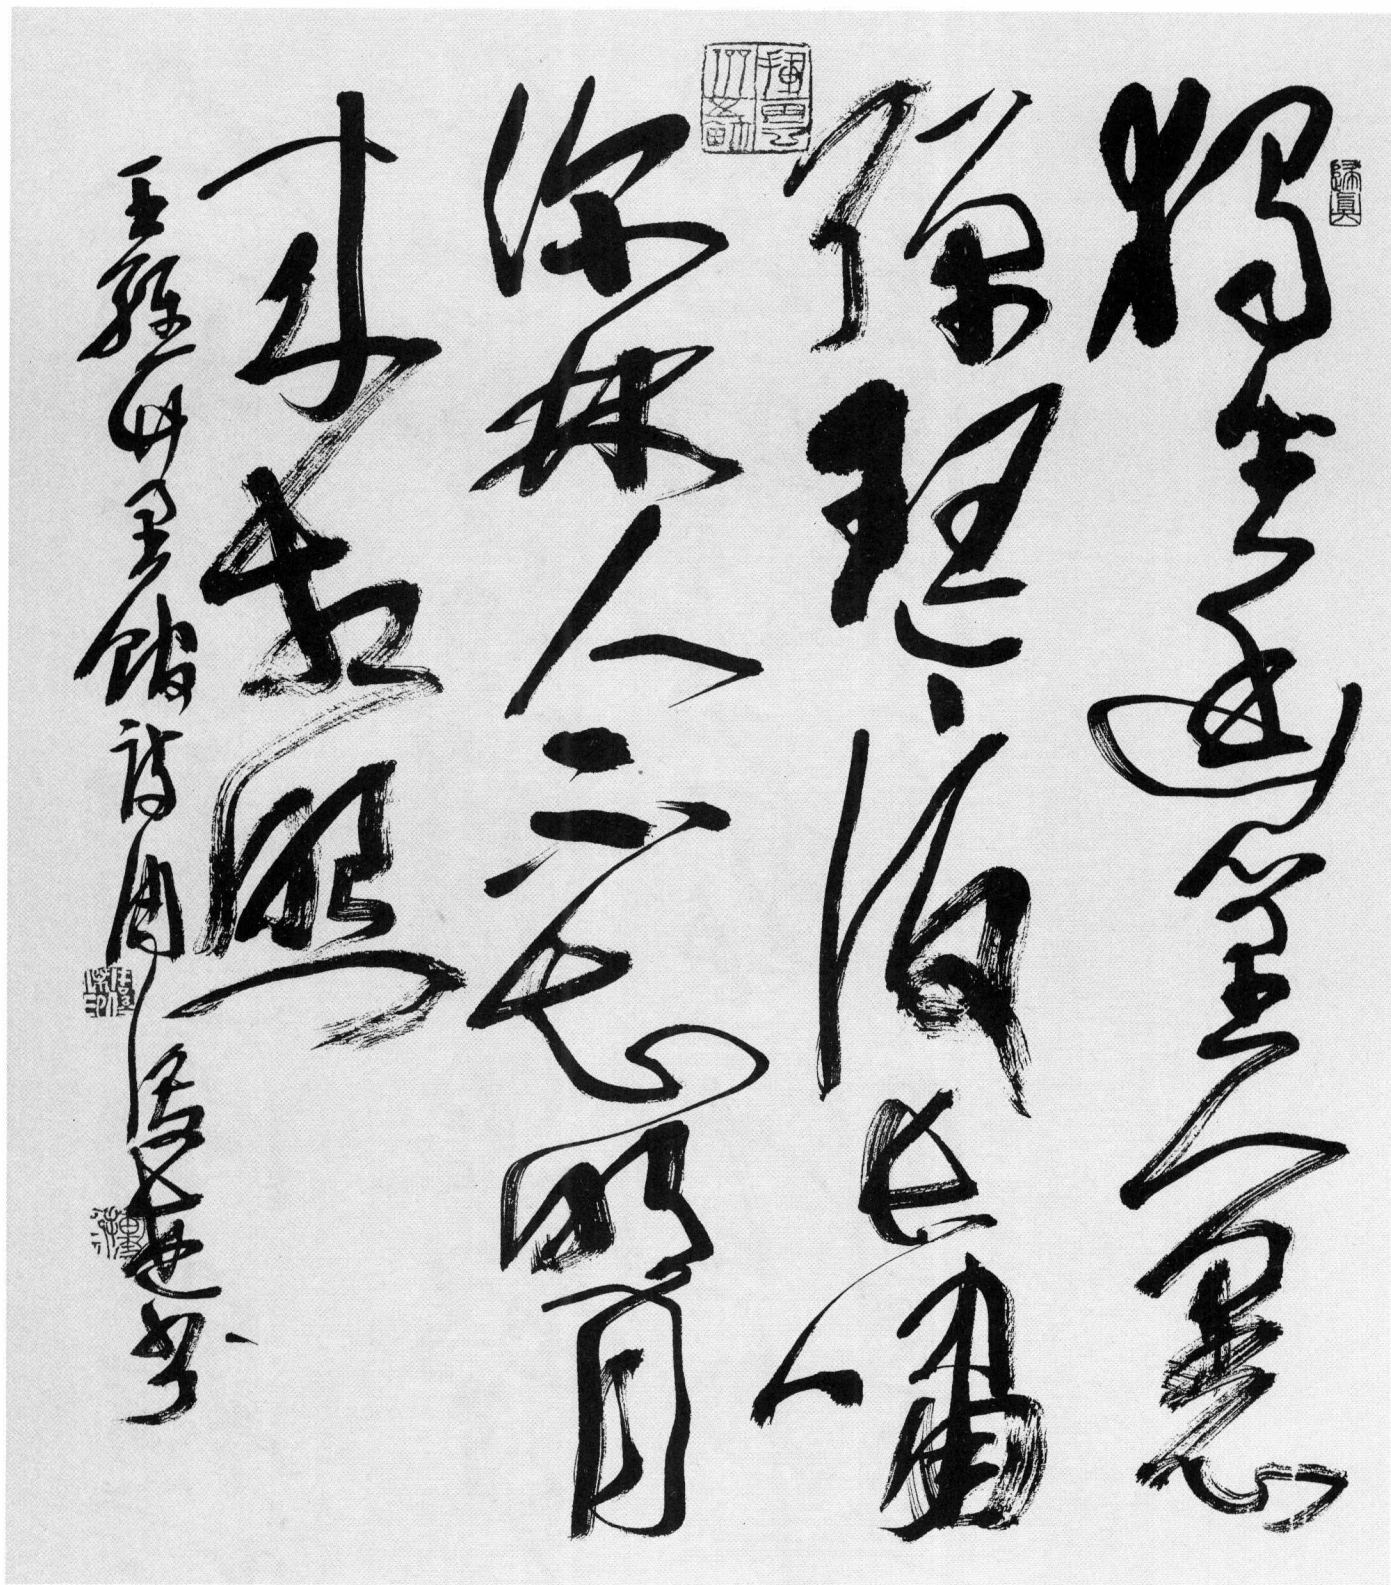 歸真
獨坐幽篁裏
彈琴復長嘯
深林人不知明月
來相照
王維竹里館詩周俊杰書